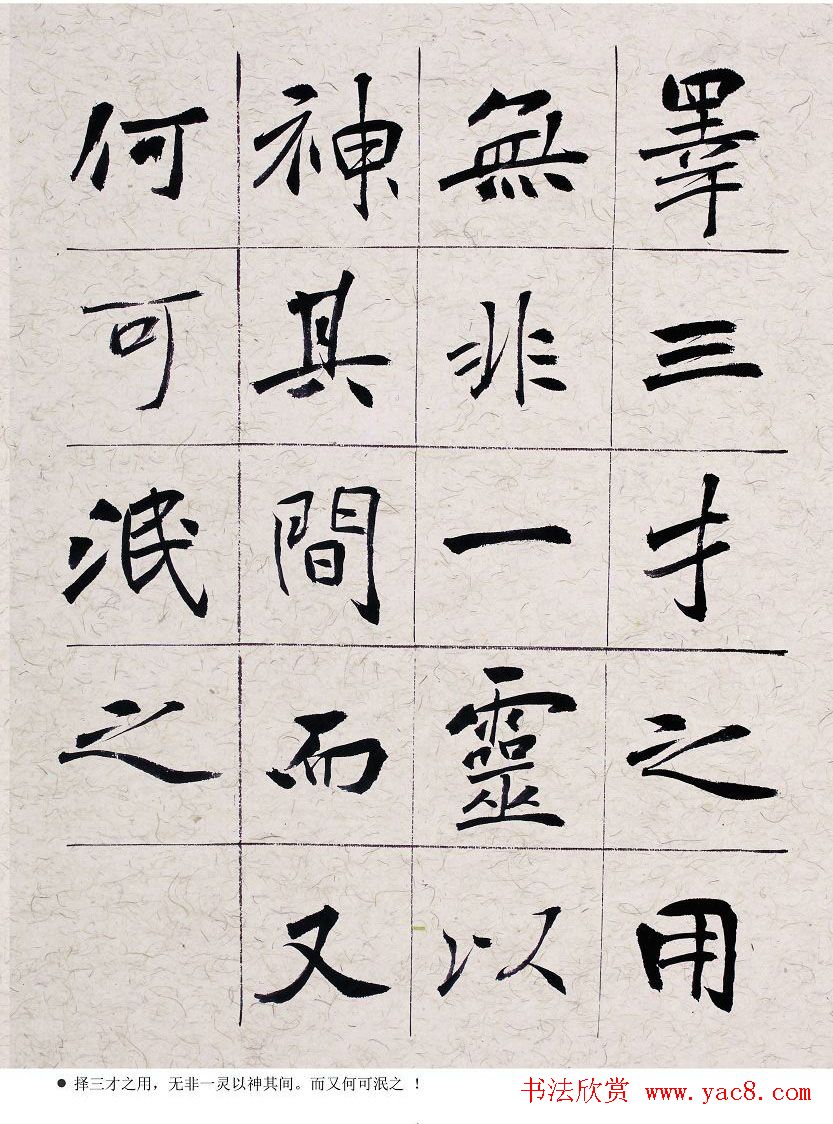 睪三才之用
無非一靈以
神其間而又
何可泯之
● 择三才之用，无非一灵以神其间。而又何可泯之 ！
书法欣赏 www.yac8.com